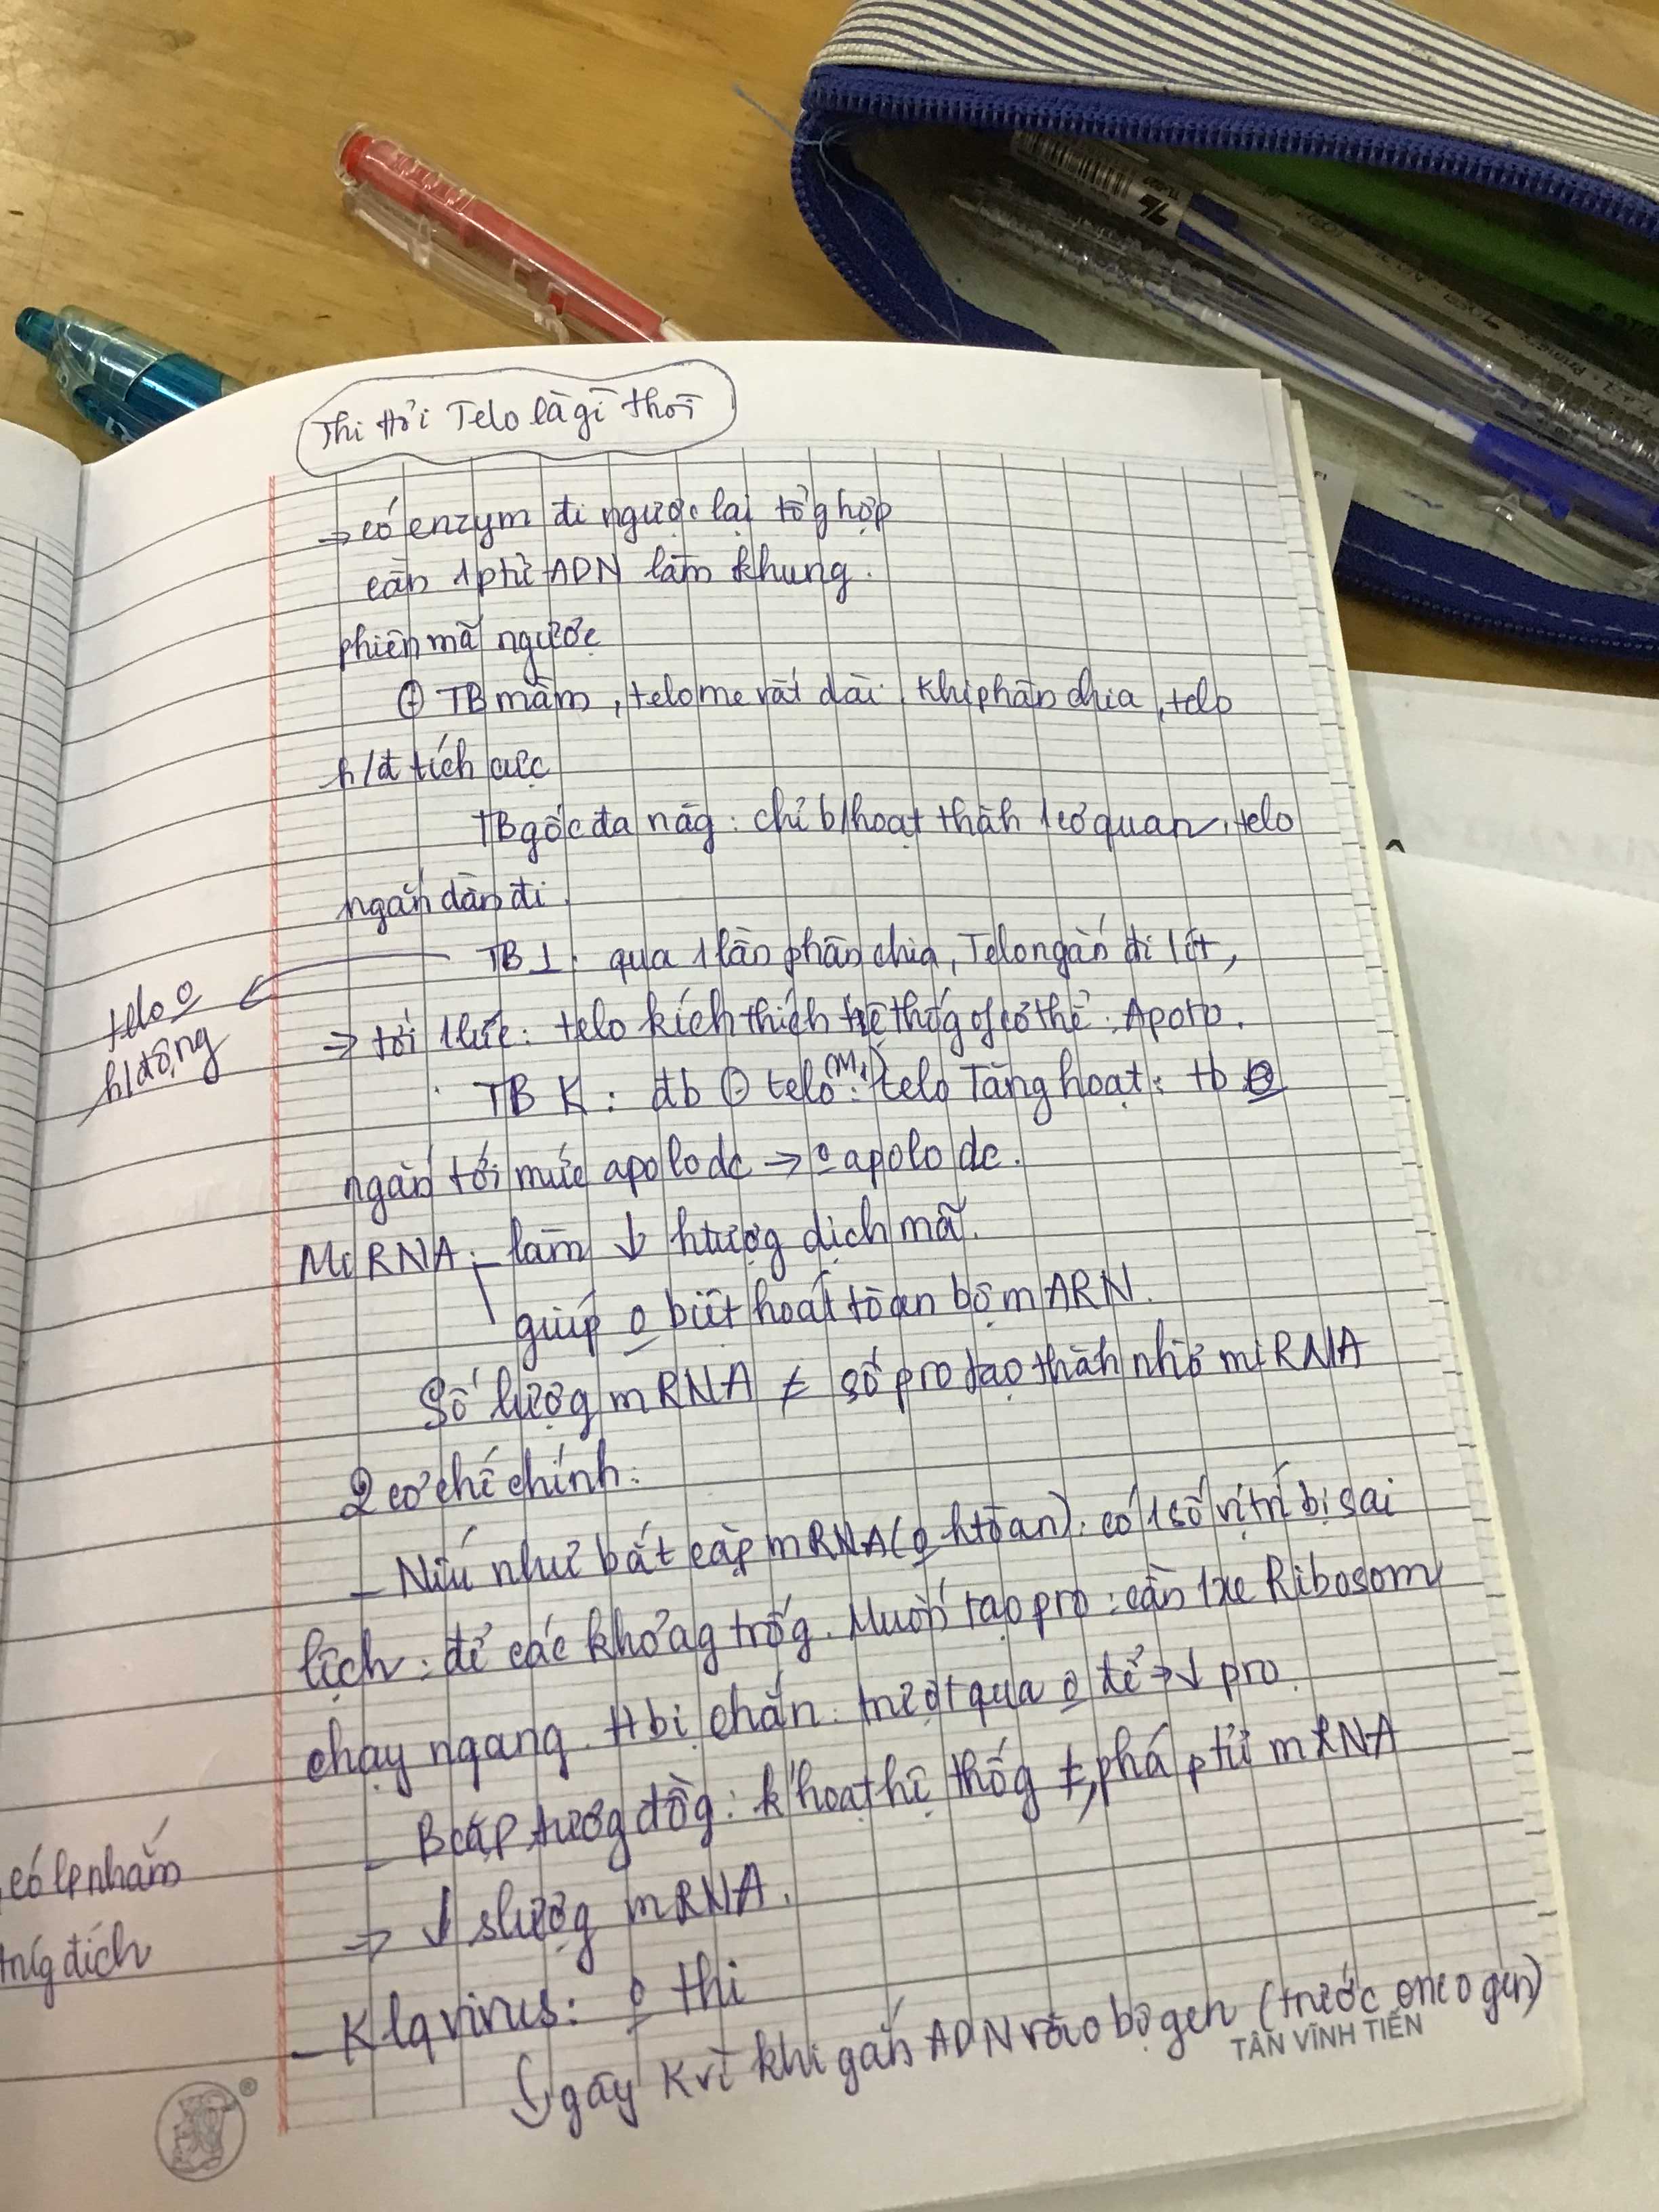 Thi hỏi Telo là gì thôi
→ có enzym đi ngược lại tổg hợp
cần 1 ptử ADN làm khung.
phiên mã ngược
⊕ TB mầm, telome rất dài, khi phân chia, telo
h/đ tích cực
TB gốc đa năg: chỉ b/hoạt thàh 1 cơ quan, telo
ngắn dần đi.
TB ⊥: qua 1 lần phân chia, Telo ngắn đi 1 ít,
telo o
h/động
⇒ tới 1 lúc: telo kích thích hệ thốg of cơ thể: Apoto.
TB K: đb ⊕ telo (M1): telo Tăng hoạt: tb o
ngắn tới mức apolo dc → o apolo dc.
Mi RNA: - làm ↓ htượg dịch mã.
giúp o biệt hoá toàn bộ mARN.
Số lượg mRNA ≠ số pro tạo thàh nhờ miRNA
2 cơ chế chính:
- Nếu như bắt cặp mRNA (o htoàn): có 1 số vị trí bị sai
lệch: để các khoảg trốg. Muốn tạo pro: cần 1 xe Ribosom
chạy ngang. Hbị chắn: trượt qua o để → ↓ pro.
- Bcặp tươg đồg: k'hoạt hệ thốg ≠, phá ptử mRNA
⇒ ↓ slượg mRNA.
có lp nhắm
trúg đích
- K lq virus: o thi
↳ gây K vì khi gắn ADN vào bộ gen (trước onco gen)
TÂN VĨNH TIẾN
®